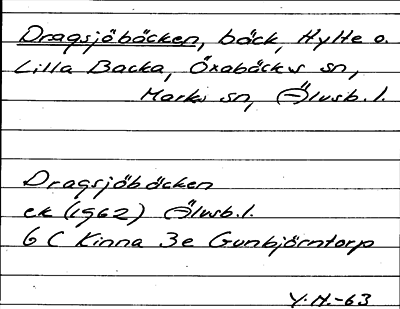 Dragsjöbäcken, bäck, Hylte o.
Lilla Backa, Öxabäcks sn,
Marks sn, Älvsb. l.
Dragsjöbäcken
ek (1962) Älvsb. l.
6 C Kinna 3e Gunbjörntorp
Y. H. -63